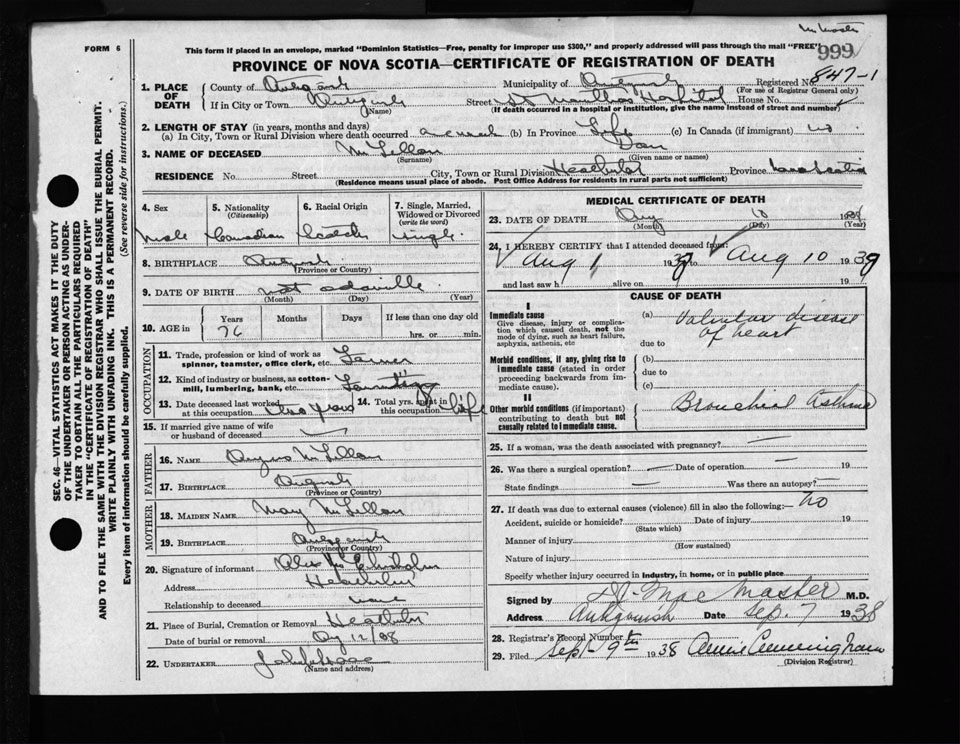 FORM 6
This form if placed in an envelope, marked "Dominion Statistics—Free, penalty for improper use $300," and properly addressed will pass through the mail "FREE"
999
PROVINCE OF NOVA SCOTIA—CERTIFICATE OF REGISTRATION OF DEATH
1. PLACE OF DEATH County of Municipality of Registered No. 847-1
(For use of Registrar General only)
If in City or Town (Name) Street Hospital House No.
(If death occurred in a hospital or institution, give the name instead of street and number)
2. LENGTH OF STAY (in years, months and days)
(a) In City, Town or Rural Division where death occurred a week (b) In Province Life (c) In Canada (if immigrant) no
3. NAME OF DECEASED McLellan Dan
(Surname) (Given name or names)
RESIDENCE No. Street City, Town or Rural Division Heatherton Province Nova Scotia
(Residence means usual place of abode. Post Office Address for residents in rural parts not sufficient)
4. Sex 5. Nationality (Citizenship) 6. Racial Origin 7. Single, Married, Widowed or Divorced (write the word)
Male Canadian Scotch Single
8. BIRTHPLACE
(Province or Country)
9. DATE OF BIRTH
(Month) (Day) (Year)
10. AGE in Years Months Days If less than one day
76 hrs. or min.
OCCUPATION
11. Trade, profession or kind of work as spinner, teamster, office clerk, etc. Farmer
12. Kind of industry or business, as cotton-mill, lumbering, bank, etc. Farming
13. Date deceased last worked at this occupation two years 14. Total yrs. spent in this occupation life
15. If married give name of wife or husband of deceased
FATHER
16. NAME Angus McLellan
17. BIRTHPLACE
(Province or Country)
MOTHER
18. MAIDEN NAME Mary McLellan
19. BIRTHPLACE
(Province or Country)
20. Signature of informant
Address Heatherton
Relationship to deceased none
21. Place of Burial, Cremation or Removal Heatherton
Date of burial or removal
22. UNDERTAKER
(Name and address)
MEDICAL CERTIFICATE OF DEATH
23. DATE OF DEATH Aug 10 19
(Month) (Day) (Year)
24. I HEREBY CERTIFY that I attended deceased from:
Aug 1 19 to Aug 10 19
and last saw h alive on 19
CAUSE OF DEATH
I
Immediate cause
Give disease, injury or complication which caused death, not the mode of dying, such as heart failure, asphyxia, asthenia, etc
(a) Valvular disease of heart
due to
Morbid conditions, if any, giving rise to immediate cause (stated in order proceeding backwards from immediate cause).
(b)
due to
(c)
II
Other morbid conditions (if important) contributing to death but not causally related to immediate cause.
Bronchial Asthma
25. If a woman, was the death associated with pregnancy?
26. Was there a surgical operation? Date of operation 19
State findings Was there an autopsy?
27. If death was due to external causes (violence) fill in also the following:— no
Accident, suicide or homicide? Date of injury 19
(State which)
Manner of injury
(How sustained)
Nature of injury
Specify whether injury occurred in industry, in home, or in public place
Signed by MacMaster M.D.
Address Antigonish Date Sep. 7 1938
28. Registrar's Record Number
29. Filed Sept 9th 1938 Annie Cunningham
(Division Registrar)
SEC. 46—VITAL STATISTICS ACT MAKES IT THE DUTY
OF THE UNDERTAKER OR PERSON ACTING AS UNDERTAKER TO OBTAIN ALL THE PARTICULARS REQUIRED
IN THE "CERTIFICATE OF REGISTRATION OF DEATH"
AND TO FILE THE SAME WITH THE DIVISION REGISTRAR WHO SHALL ISSUE THE BURIAL PERMIT.
WRITE PLAINLY WITH UNFADING INK. THIS IS A PERMANENT RECORD.
Every item of information should be carefully supplied. (See reverse side for instructions.)